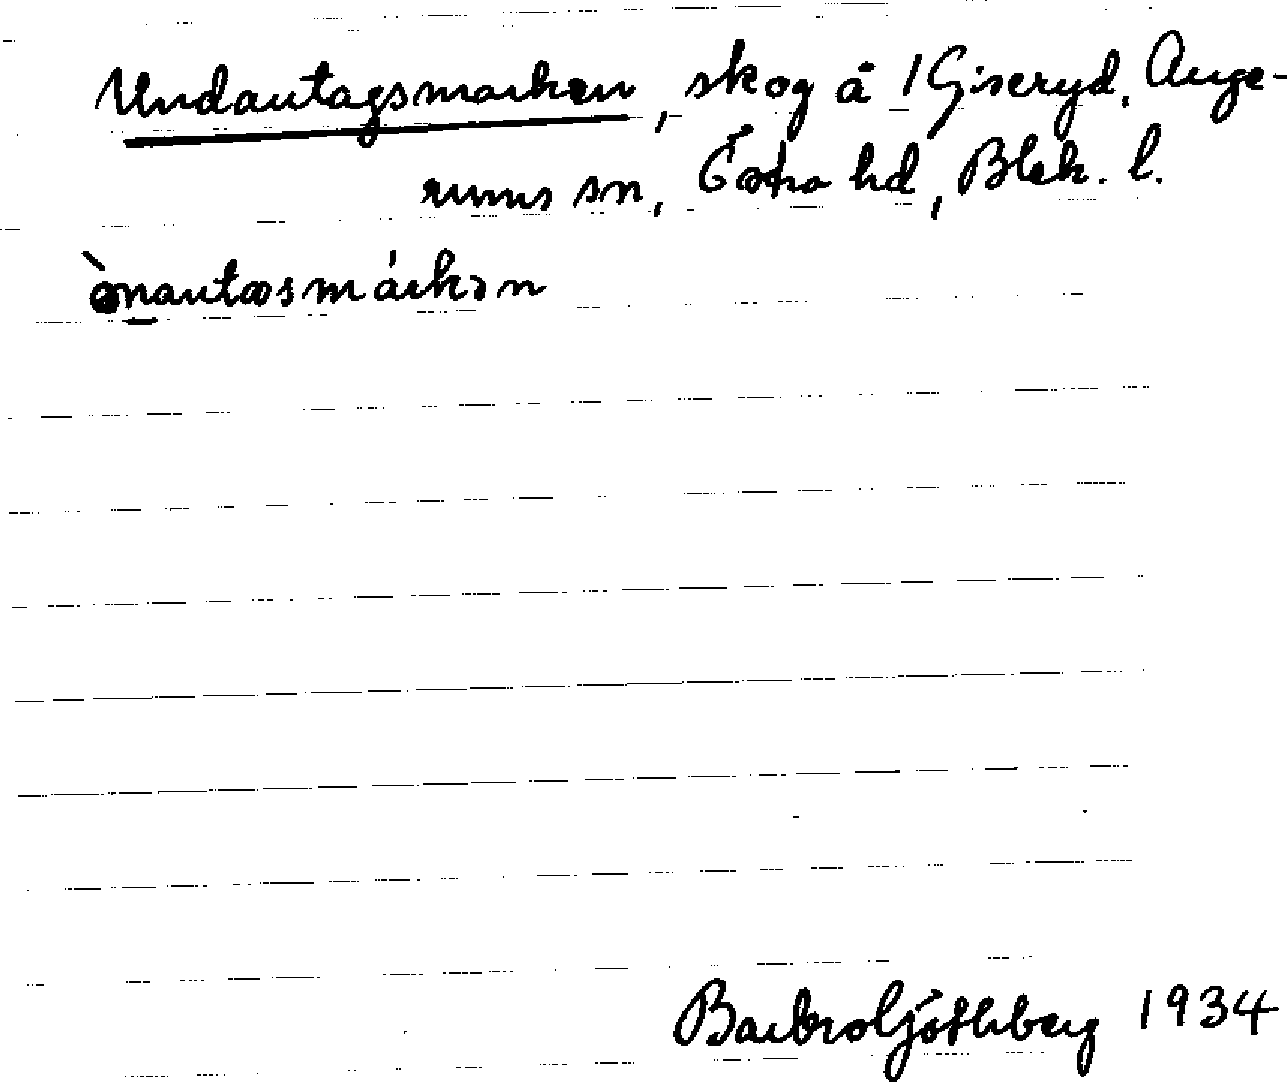 Undantagsmarken, skog å 1 Giseryd, Ange-
rums sn, Östra hd, Blek. l.
ònantæsmárkən
Barbro Göthberg 1934